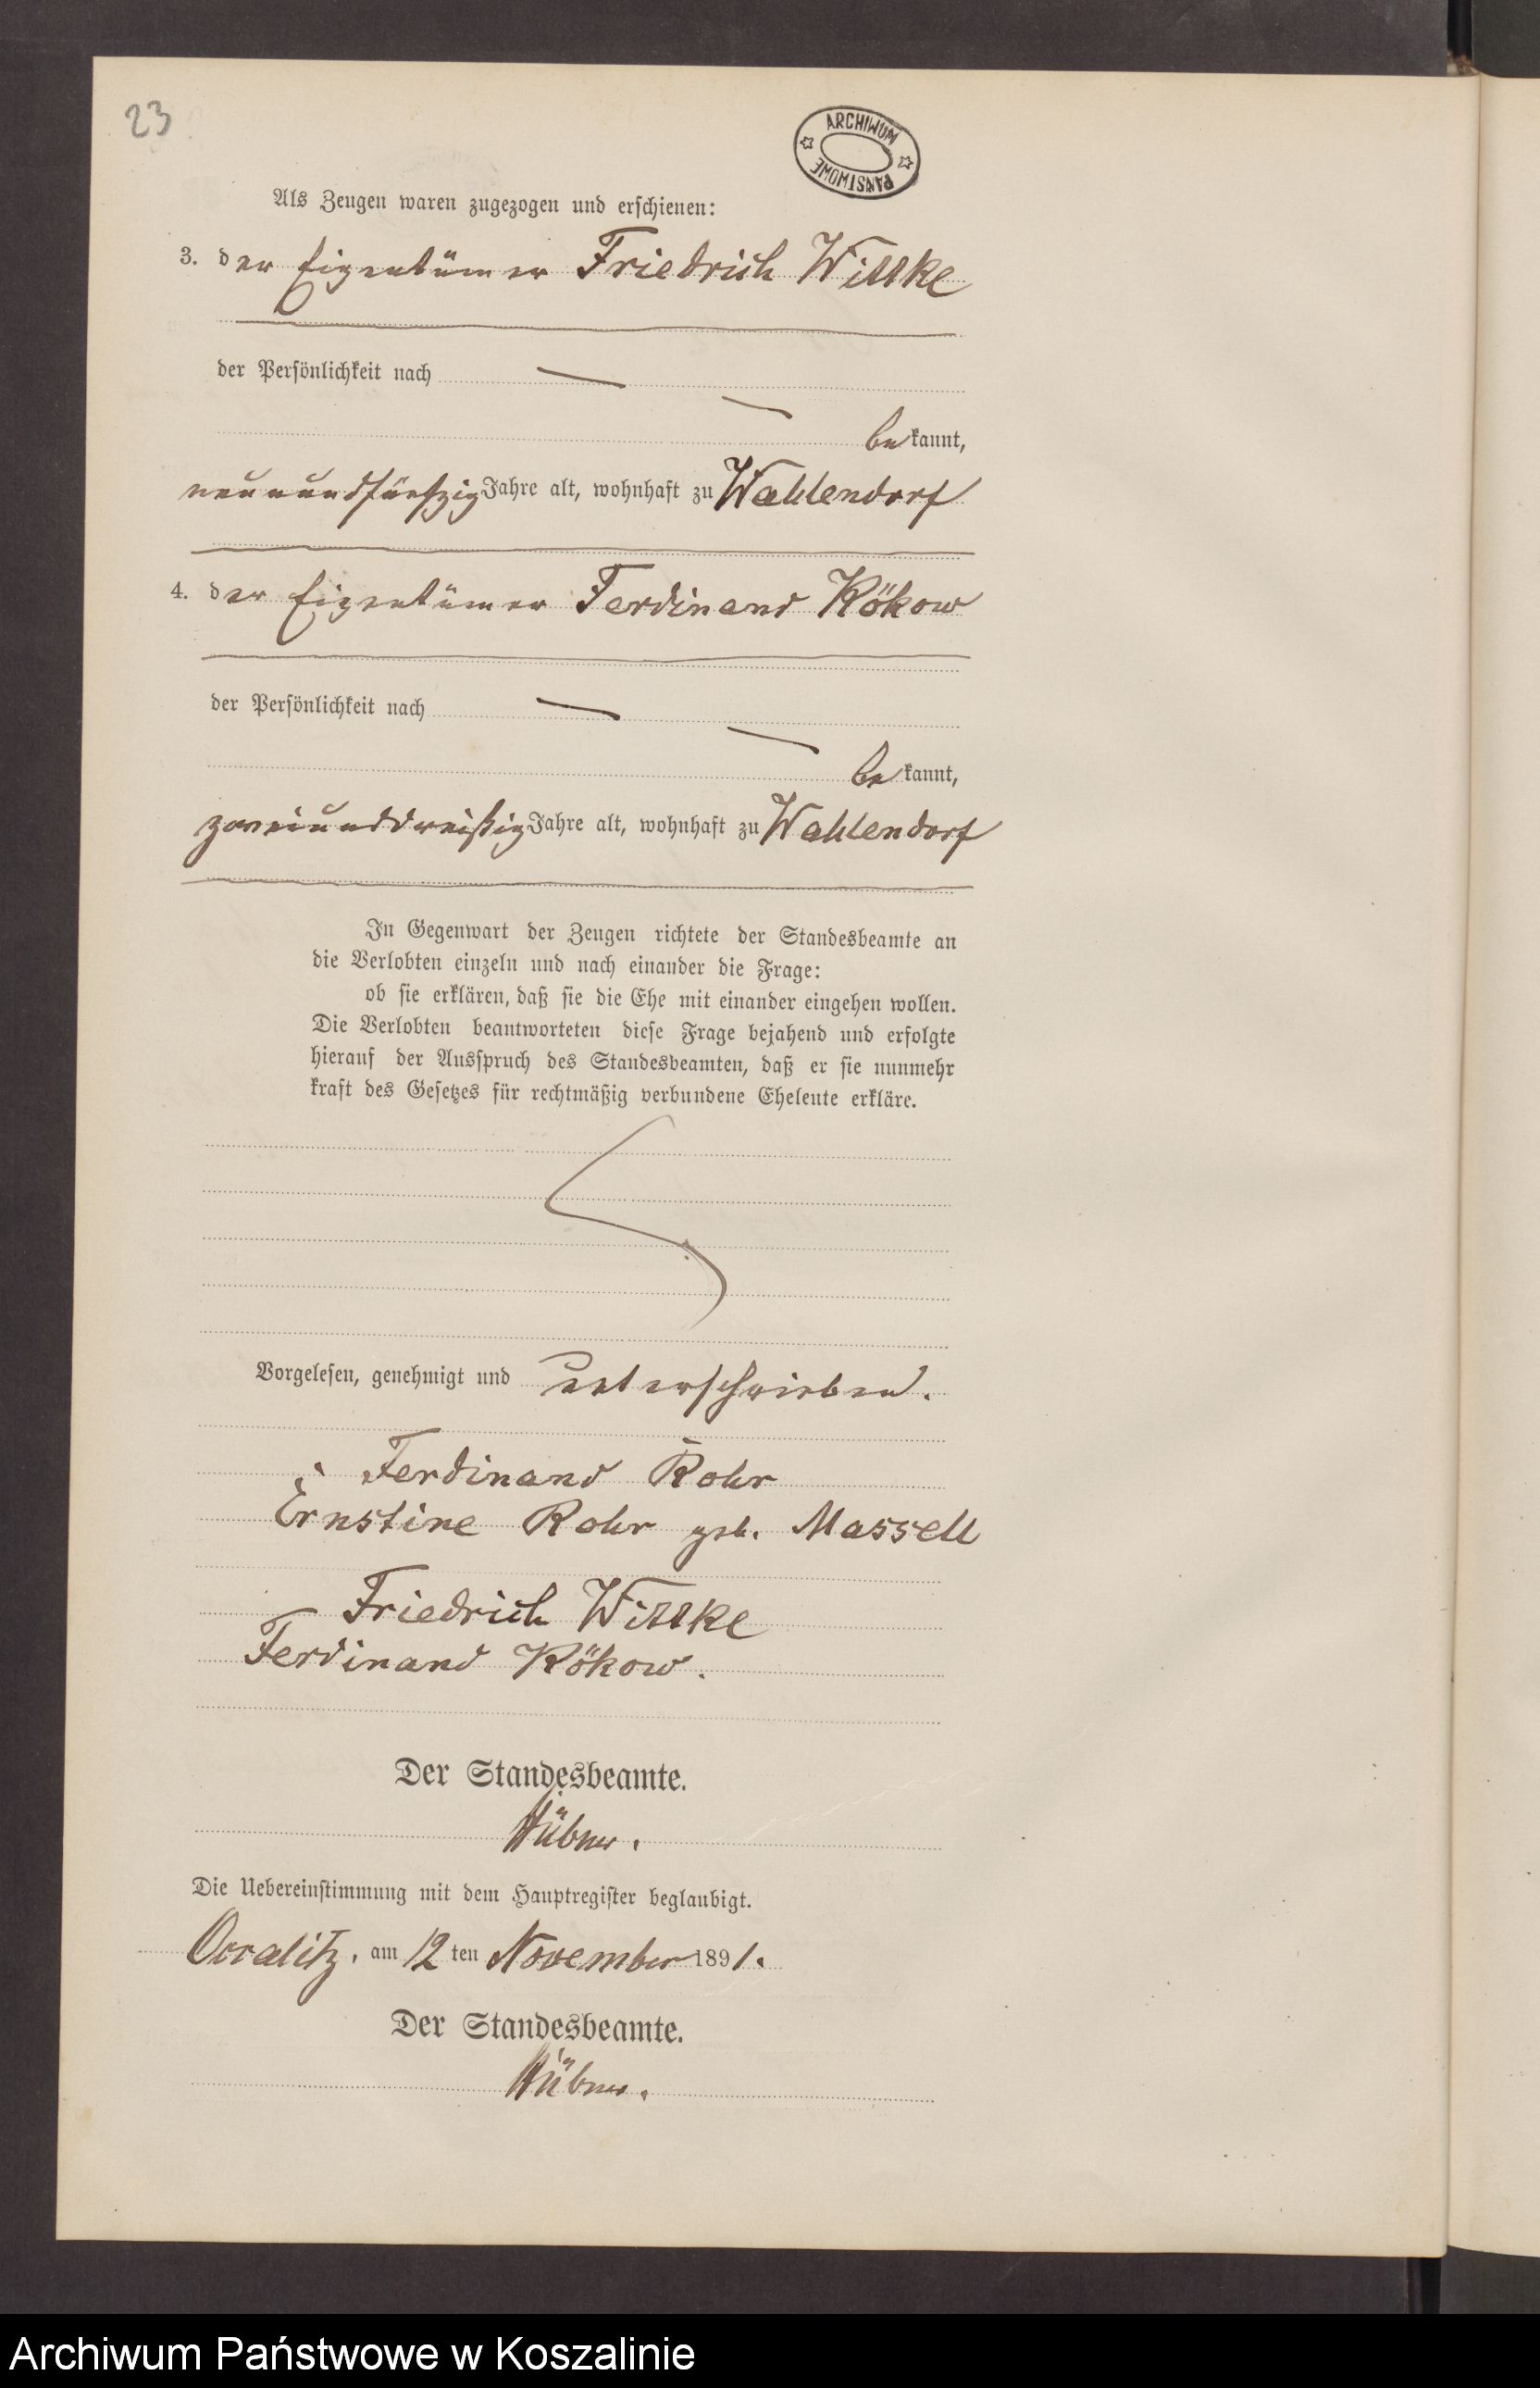 23
ARCHIWUM PAŃSTWOWE
Als Zeugen waren zugezogen und erschienen:
3. der Eigentümer Friedrich
der Persönlichkeit nach —
— bekannt,
neunundfünfzig Jahre alt, wohnhaft zu Wahlendorf
4. der Eigentümer Ferdinand Kökow
der Persönlichkeit nach —
— bekannt,
zweiunddreißig Jahre alt, wohnhaft zu Wahlendorf
In Gegenwart der Zeugen richtete der Standesbeamte an
die Verlobten einzeln und nach einander die Frage:
ob sie erklären, daß sie die Ehe mit einander eingehen wollen.
Die Verlobten beantworteten diese Frage bejahend und erfolgte
hierauf der Ausspruch des Standesbeamten, daß er sie nunmehr
kraft des Gesetzes für rechtmäßig verbundene Eheleute erkläre.
Vorgelesen, genehmigt und unterschrieben.
Ferdinand Rohr
Ernstine Rohr geb. Massell
Friedrich
Ferdinand Kökow.
Der Standesbeamte.
Hübner.
Die Uebereinstimmung mit dem Hauptregister beglaubigt.
Occalitz, am 12 ten November 1891.
Der Standesbeamte.
Hübner.
Archiwum Państwowe w Koszalinie